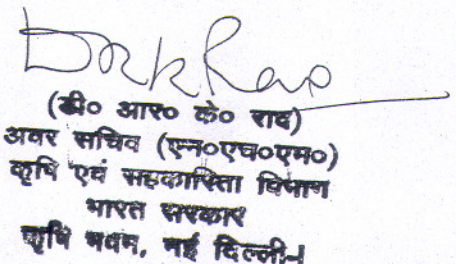 DRK Rao
(डी० आर० के० राव)
अवर सचिव (एन०एच०एम०)
कृषि एवं सहकारिता विभाग
भारत सरकार
कृषि भवन, नई दिल्ली-1